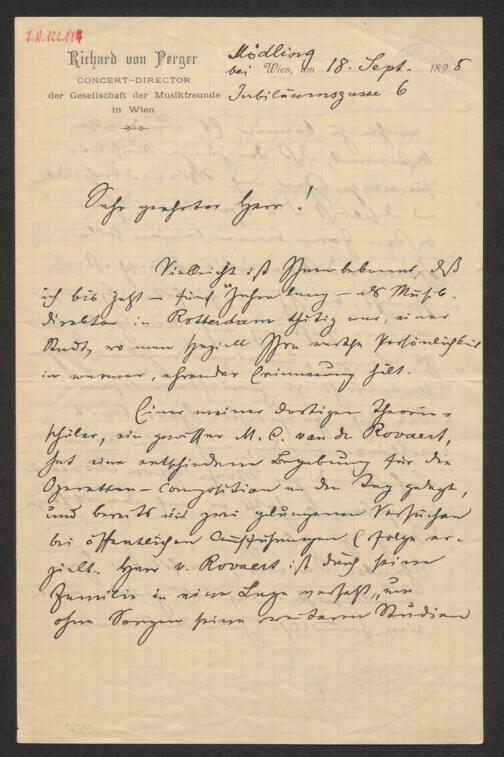 I.N. 122.884
Richard von Perger
CONCERT-DIRECTOR
der Gesellschaft der Musikfreunde
in Wien.
Mödling
bei Wien, am 18. Sept. 1895
Jubiläumsgasse 6
Sehr geehrter Herr!
Vielleicht ist Ihnen bekannt, daß
ich bis jetzt – fünf Jahre lang – als Musik-
direktor in Rotterdam thätig war, einer
Stadt, wo man speziell Ihre werthe Persönlichkeit
in warmer, ehrender Erinnerung hält.
Einer meiner dortigen Theorie-
schüler, ein gewisser M. C. van de Rovaert,
hat eine entschiedene Begabung für die
Operetten-Composition an den Tag gelegt,
und bereits mit zwei gelungenen Versuchen
bei öffentlichen Aufführungen Erfolge er-
zielt. Herr v. Rovaert ist durch seine
Familie in eine Lage versetzt, um
ohne Sorgen seine weiteren Studien